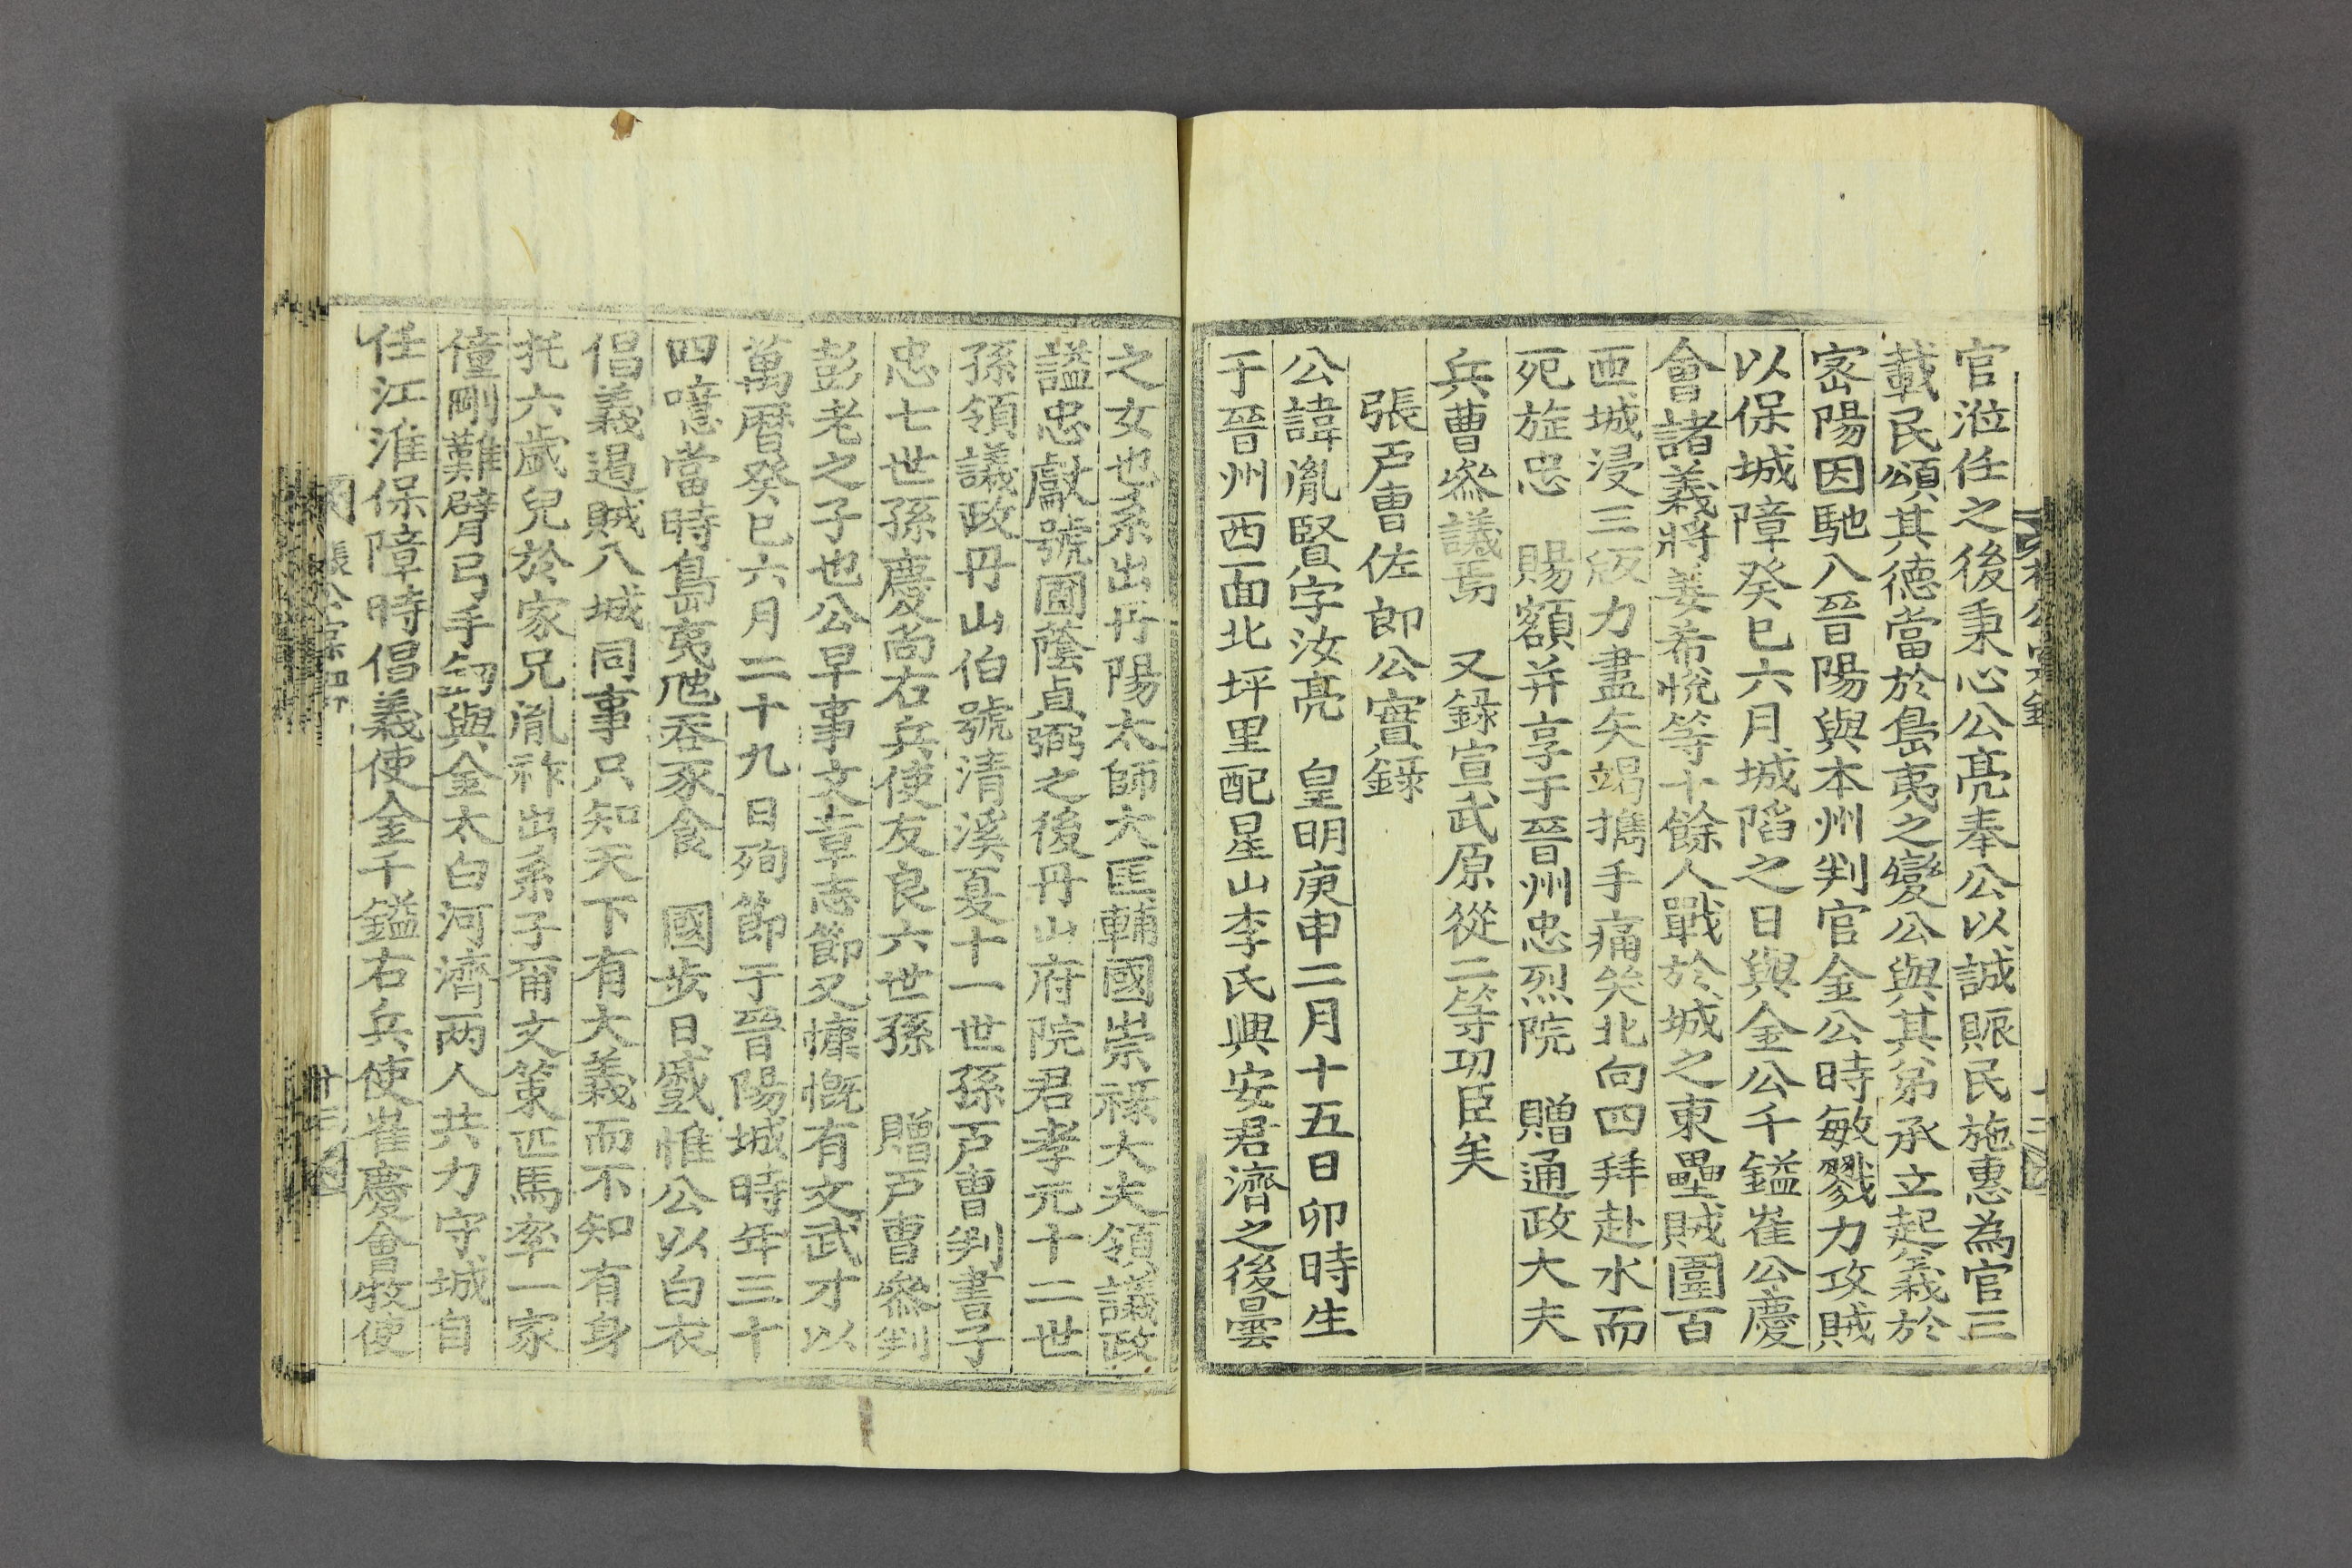 官涖任之後秉心公亮奉公以誠賑民施惠為官三
載民頌其德當於島夷之變公與其弟承立起義於
密陽因馳入晉陽與本州判官金公時敏戮力攻賊
以保城障癸巳六月城陷之日與金公千鎰崔公慶
會諸義將姜希悅等十餘人戰於城之東壘賊圍百
匝城浸三版力盡矢竭擕手痛哭北向四拜赴水而
死旋忠 賜額并享于晉州忠烈院 贈通政大夫
兵曹叅議焉 又錄宣武原從二等功臣矣
張戶曺佐郎公實錄
公諱胤賢字汝亮 皇明庚申二月十五日卯時生
于晉州西面北坪里配星山李氏興安君濟之後曇
之女也系出丹陽太師大匡輔國崇祿大夫領議政
謚忠獻號圃蔭貞弼之後丹山府院君孝元十二世
孫領議政丹山伯號清溪夏十一世孫戶曺判書子
忠七世孫慶尙右兵使友良六世孫 贈戶曹叅判
彭老之子也公早事文章志節又慷慨有文武才以
萬曆癸巳六月二十九日殉節于晉陽城時年三十
四噫當時島夷虺呑豕食 國步日蹙惟公以白衣
倡義遏賊入城同事只知天下有大義而不知有身
托六歲兒於家兄胤祚出系子甯文策匹馬率一家
僮剛難臂弓手釰與金太白河濟兩人共力守城自
任江淮保障時倡義使金千鎰右兵使崔慶會牧使